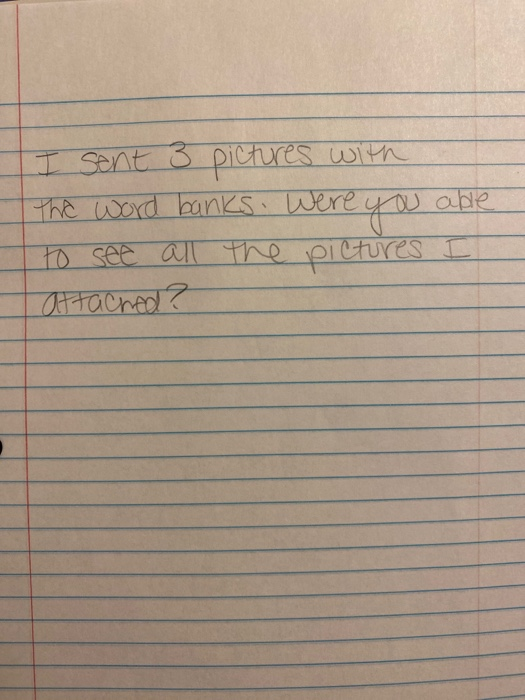 I sent 3 pictures with
the word banks. Were you able
to see all the pictures I
attached?